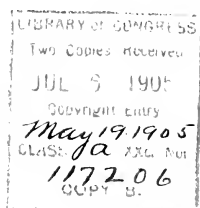 LIBRARY of CONGRESS
Two Copies Received
JUL 5 1905
Copyright Entry
May 19.1905
CLASS a XXc. No:
117206
COPY B.